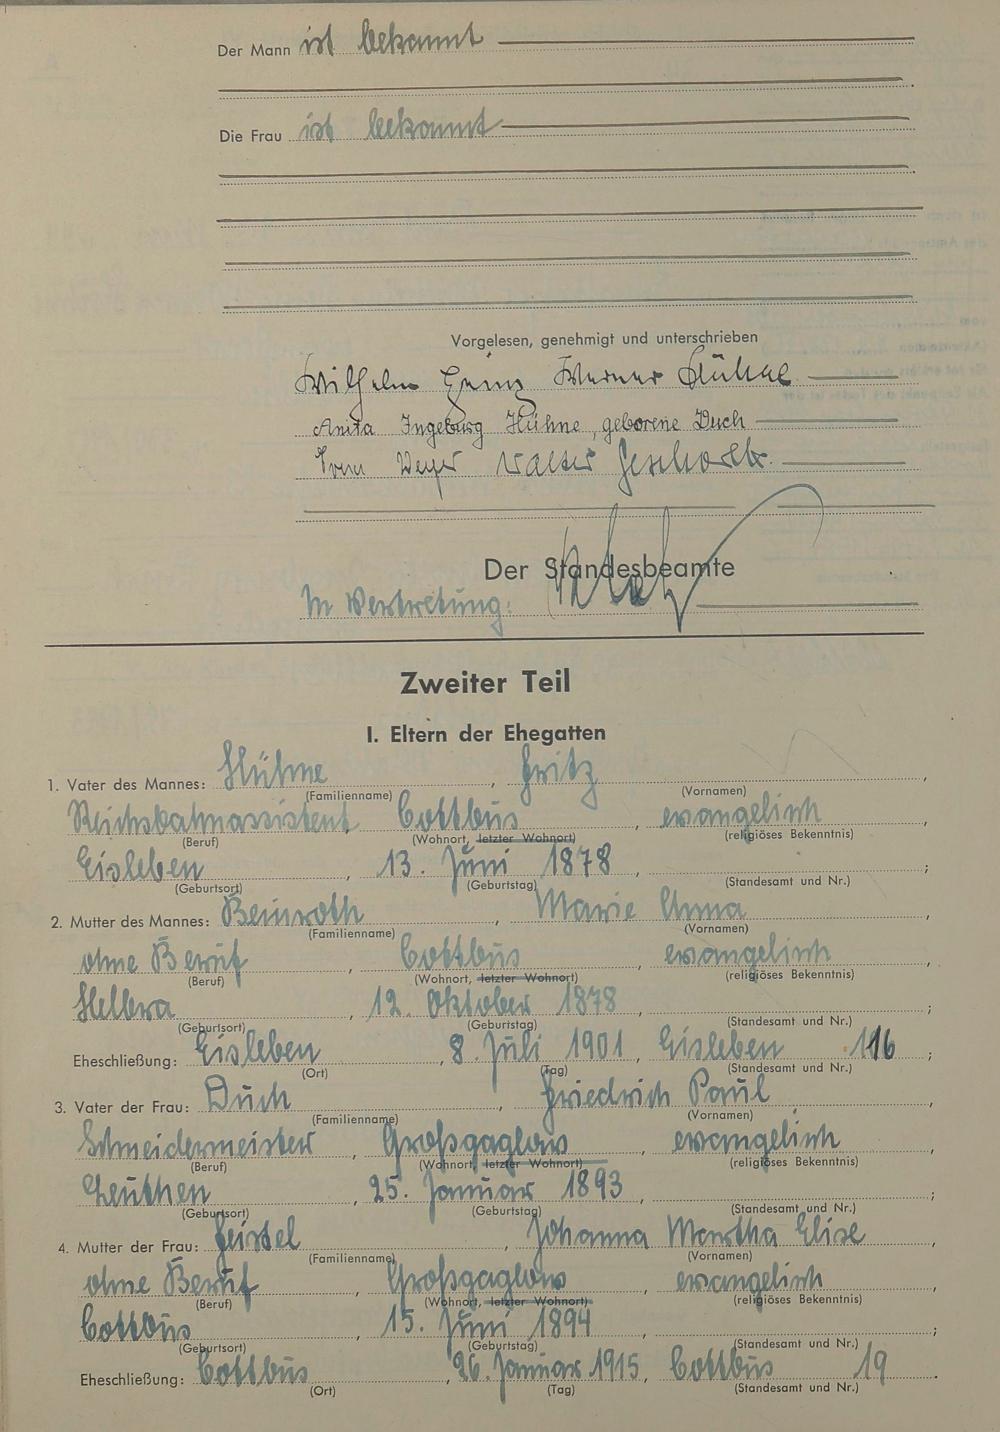 Der Mann ist bekannt
Die Frau ist bekannt
Vorgelesen, genehmigt und unterschrieben
Wilhelm Heinz Werner Hühne
Anita Ingeburg Hühne, geborene Duch
Walter
Der Standesbeamte
In Vertretung:
Zweiter Teil
I. Eltern der Ehegatten
1. Vater des Mannes: Hühne, Fritz,
(Familienname) (Vornamen)
Reichsbahnassistent, Cottbus, evangelisch
(Beruf) (Wohnort, letzter Wohnort) (religiöses Bekenntnis)
Eisleben, 13. Juni 1878, ;
(Geburtsort) (Geburtstag) (Standesamt und Nr.)
2. Mutter des Mannes: Beinroth, Marie Anna,
(Familienname) (Vornamen)
ohne Beruf, Cottbus, evangelisch
(Beruf) (Wohnort, letzter Wohnort) (religiöses Bekenntnis)
Helbra, 12. Oktober 1878, ;
(Geburtsort) (Geburtstag) (Standesamt und Nr.)
Eheschließung: Eisleben, 8. Juli 1901, Eisleben 116 ;
(Ort) (Tag) (Standesamt und Nr.)
3. Vater der Frau: Duch, Friedrich Paul,
(Familienname) (Vornamen)
Schneidermeister, Großgaglow, evangelisch
(Beruf) (Wohnort, letzter Wohnort) (religiöses Bekenntnis)
Leuthen, 25. Januar 1893, ;
(Geburtsort) (Geburtstag) (Standesamt und Nr.)
4. Mutter der Frau: Geistel, Johanna Martha Elise,
(Familienname) (Vornamen)
ohne Beruf, Großgaglow, evangelisch
(Beruf) (Wohnort, letzter Wohnort) (religiöses Bekenntnis)
Cottbus, 15. Juni 1894, ;
(Geburtsort) (Geburtstag) (Standesamt und Nr.)
Eheschließung: Cottbus, 26. Januar 1915, Cottbus 19.
(Ort) (Tag) (Standesamt und Nr.)